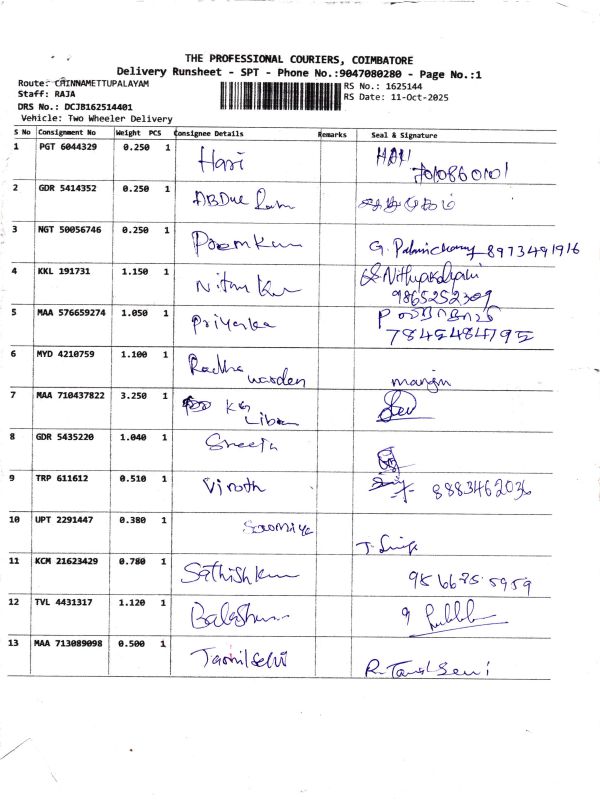 THE PROFESSIONAL COURIERS, COIMBATORE
Delivery Runsheet - SPT - Phone No.:9047080280 - Page No.:1
Route: CHINNAMETTUPALAYAM
Staff: RAJA
DRS No.: DCJB162514401
RS No.: 1625144
RS Date: 11-Oct-2025
Vehicle: Two Wheeler Delivery
S No Consignment No Weight PCS Consignee Details Remarks Seal & Signature
1 PGT 6044329 0.250 1 Hari HARI
2 GDR 5414352 0.250 1 ABDul
3 NGT 50056746 0.250 1 G. 8973491916
4 KKL 191731 1.150 1 Nithyakalyani
9865252309
5 MAA 576659274 1.050 1 Priyanka
7845484795
6 MYD 4210759 1.100 1 Radha
warden
7 MAA 710437822 3.250 1 KG
8 GDR 5435220 1.040 1 Sreeja
9 TRP 611612 0.510 1 Vinoth 8883462036
10 UPT 2291447 0.380 1 Sowmiya
11 KCM 21623429 0.780 1 Sathishkum
12 TVL 4431317 1.120 1
13 MAA 713089098 0.500 1 Tamilselvi R. Tamil Selvi